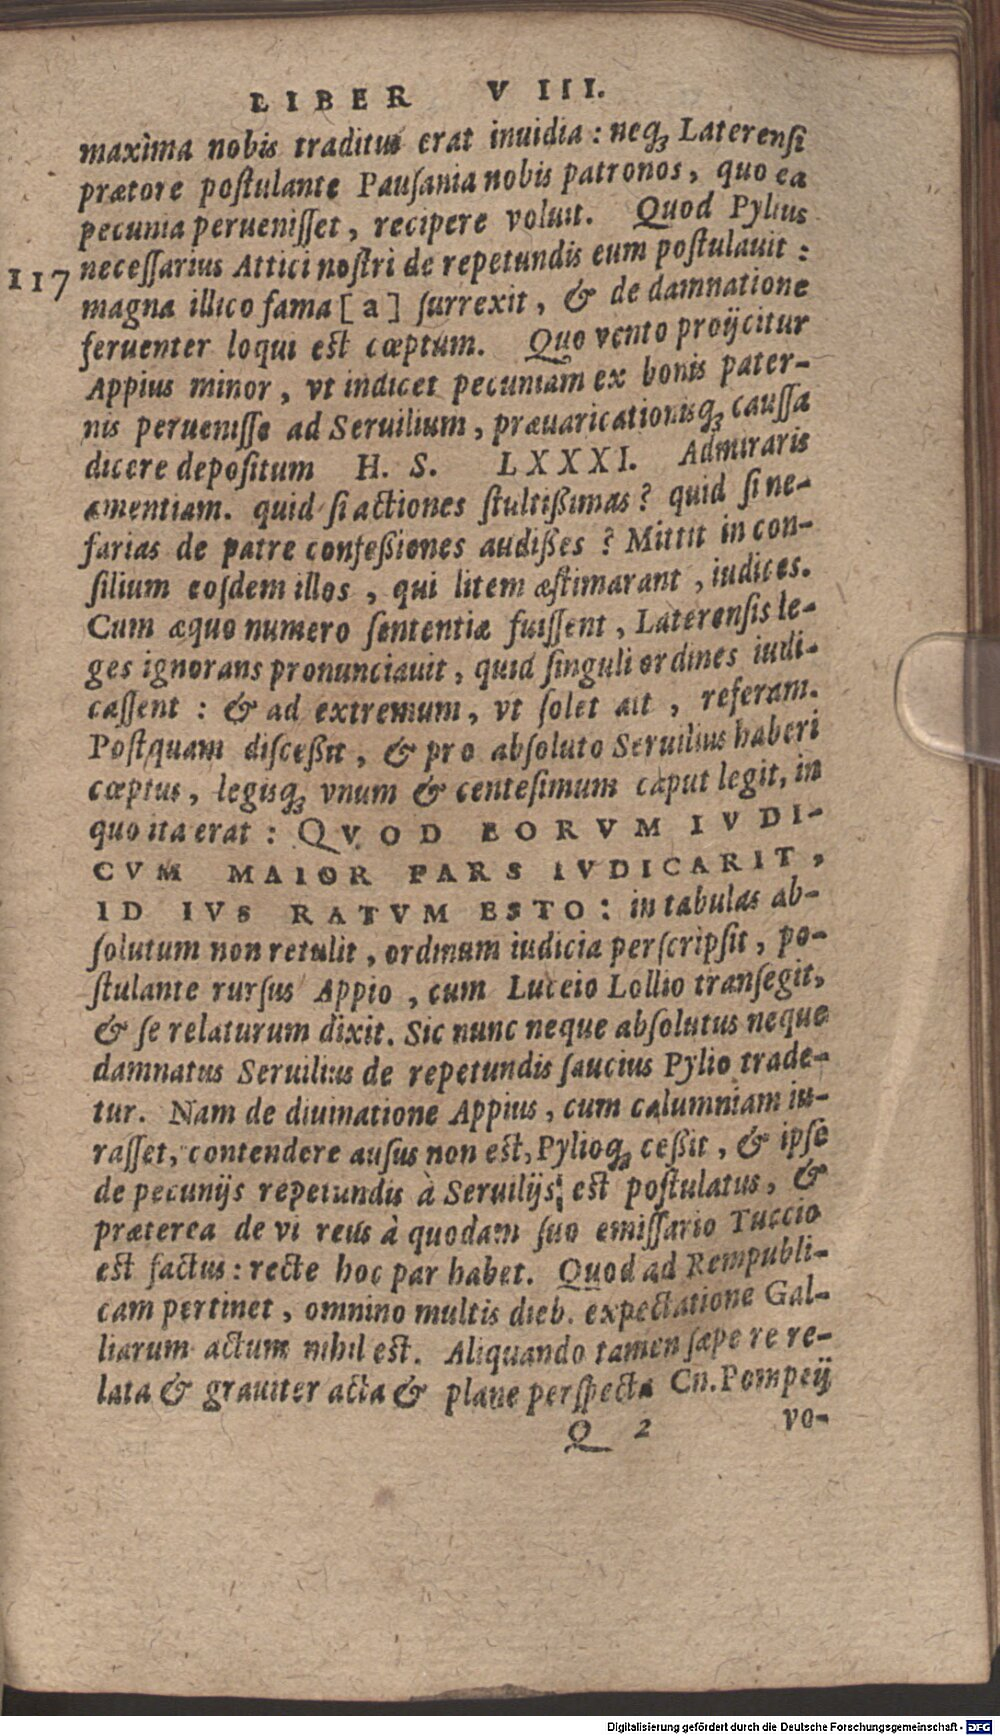 LIBER VIII.
maxima nobis traditus erat inuidia : neq; Laterensi
prætore postulante Pausania nobis patronos, quo ea
pecunia peruenisset, recipere voluit. Quod Pylius
117 necessarius Attici nostri de repetundis eum postulauit :
magna illico fama [a] surrexit, & de damnatione
feruenter loqui est cœptum. Quo vento proijcitur
Appius minor, vt indicet pecuniam ex bonis pater-
nis peruenisse ad Seruilium, præuaricationisq; caussa
dicere depositum H. S. LXXXI. Admiraris
amentiam. quid si actiones stultißimas? quid si ne-
farias de patre confeßiones audißes? Mittit in con-
silium eosdem illos, qui litem æstimarant, iudices.
Cum æquo numero sententiæ fuissent, Laterensis le-
ges ignorans pronunciauit, quid singuli ordines iudi-
cassent : & ad extremum, vt solet ait, referam.
Postquam discessit, & pro absoluto Seruilius haberi
cœptus, legisq; vnum & centesimum caput legit, in
quo ita erat : QVOD EORVM IVDI-
CVM MAIOR PARS IVDICARIT,
ID IVS RATVM ESTO: in tabulas ab-
solutum non retulit, ordinum iudicia perscripsit, po-
stulante rursus Appio, cum Luceio Lollio transegit,
& se relaturum dixit. Sic nunc neque absolutus neque
damnatus Seruilius de repetundis saucius Pylio trade-
tur. Nam de diuinatione Appius, cum calumniam iu-
rasset, contendere ausus non est, Pylioq; ceßit, & ipse
de pecunijs repetundis à Seruilijs est postulatus, &
præterea de vi reus à quodam suo emissario Tuccio
est factus: recte hoc par habet. Quod ad Rempubli-
cam pertinet, omnino multis dieb. expectatione Gal-
liarum actum nihil est. Aliquando tamen sæpe re re-
lata & grauiter acta & plane perspecta Cn. Pompeij
Q 2 vo-
Digitalisierung gefördert durch die Deutsche Forschungsgemeinschaft - DFG